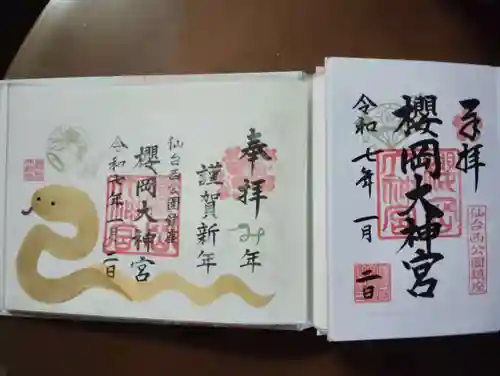 奉拝
櫻岡大神宮
令和七年一月
二日
仙台西公園鎮座
奉拝
み年
謹賀新年
仙台西公園鎮座
櫻岡大神宮
令和七年一月二日